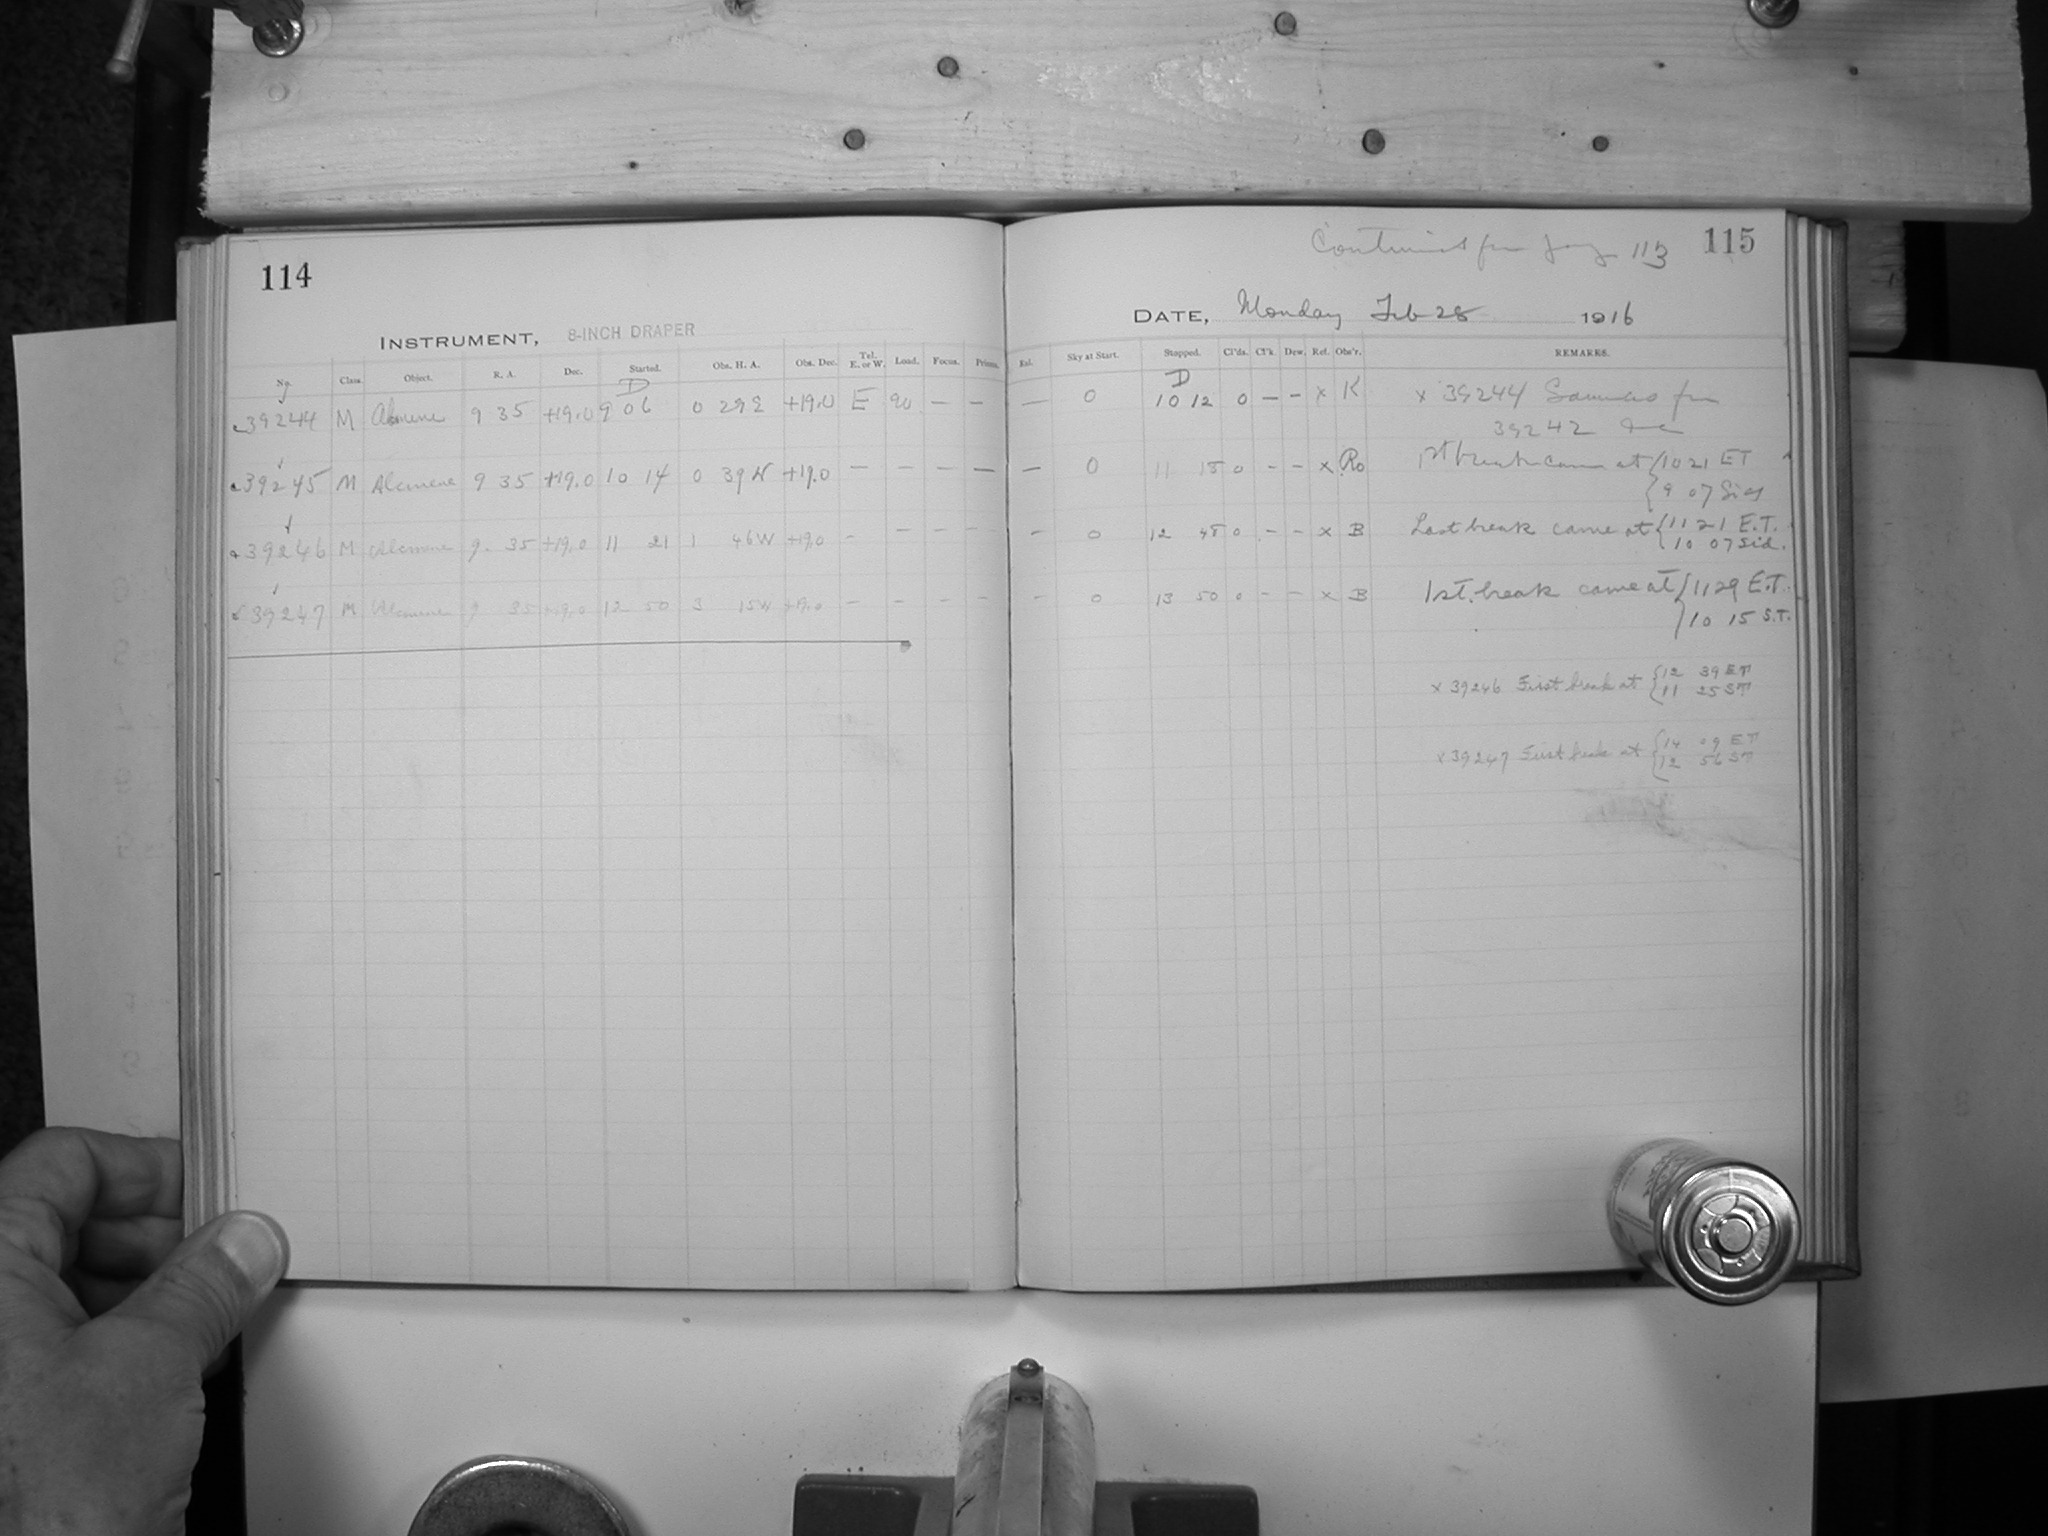 114
INSTRUMENT, 8-INCH DRAPER
No. Class. Object. R. A. Dec. Started. Obs. H. A. Obs. Dec. Tel. E. or W. Load. Focus. Prisms.
D
39244 M Alcmene 9 35 +19.0 9 06 0 29 E +19.0 E 90 — —
39245 M Alcmene 9 35 +19.0 10 14 0 39 W +19.0 — — — —
39246 M Alcmene 9 35 +19.0 11 21 1 46W +19.0 - - - -
39247 M Alcmene 9 35 +19.0 12 50 3 15W +19.0 - - - -
Continued fm 113 115
DATE, Monday Feb 28 1916
Exl. Sky at Start. Stopped. Cl'ds. Cl'k. Dew. Ref. Obs'r. REMARKS.
D
— 0 10 12 0 — — x K x 39244 Same as for
39242
— 0 11 18 0 - - x Ro 1st break came at 10 21 ET
9 07 Sid
- 0 12 48 0 - - x B Last break came at 11 21 E.T.
10 07 Sid.
- 0 13 50 0 - - x B 1st. break came at 11 29 E.T.
10 15 S.T.
x 39246 First break at 12 39 ET
11 25 ST
x 39247 First break at 14 09 ET
12 56 ST